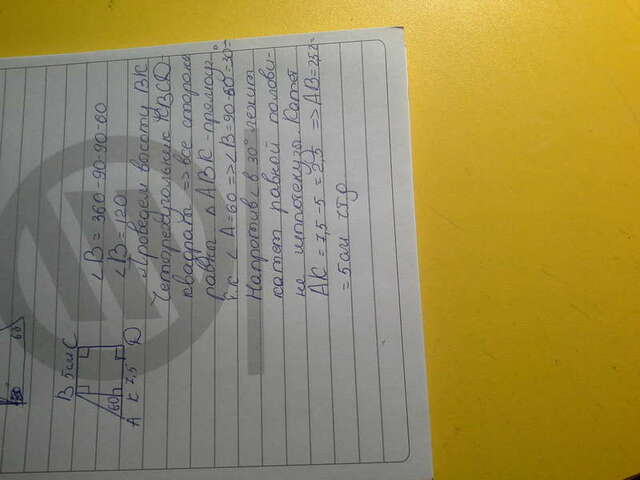 B 5см C
60°
A K 7,5 D
60
∠B = 360-90-90-60
∠B = 120
Проведем высоту BK
Четырехугольник KBCD
квадрат => все стороны
равны △ABK - прямоуг.
т.к ∠A=60 => ∠B=90-60=30°
Напротив ∠ в 30° лежит
катет равной полови-
не гиппотенуза. Катет
AK = 7,5-5 = 2,5 => AB=2,5·2=
= 5см ЧТД